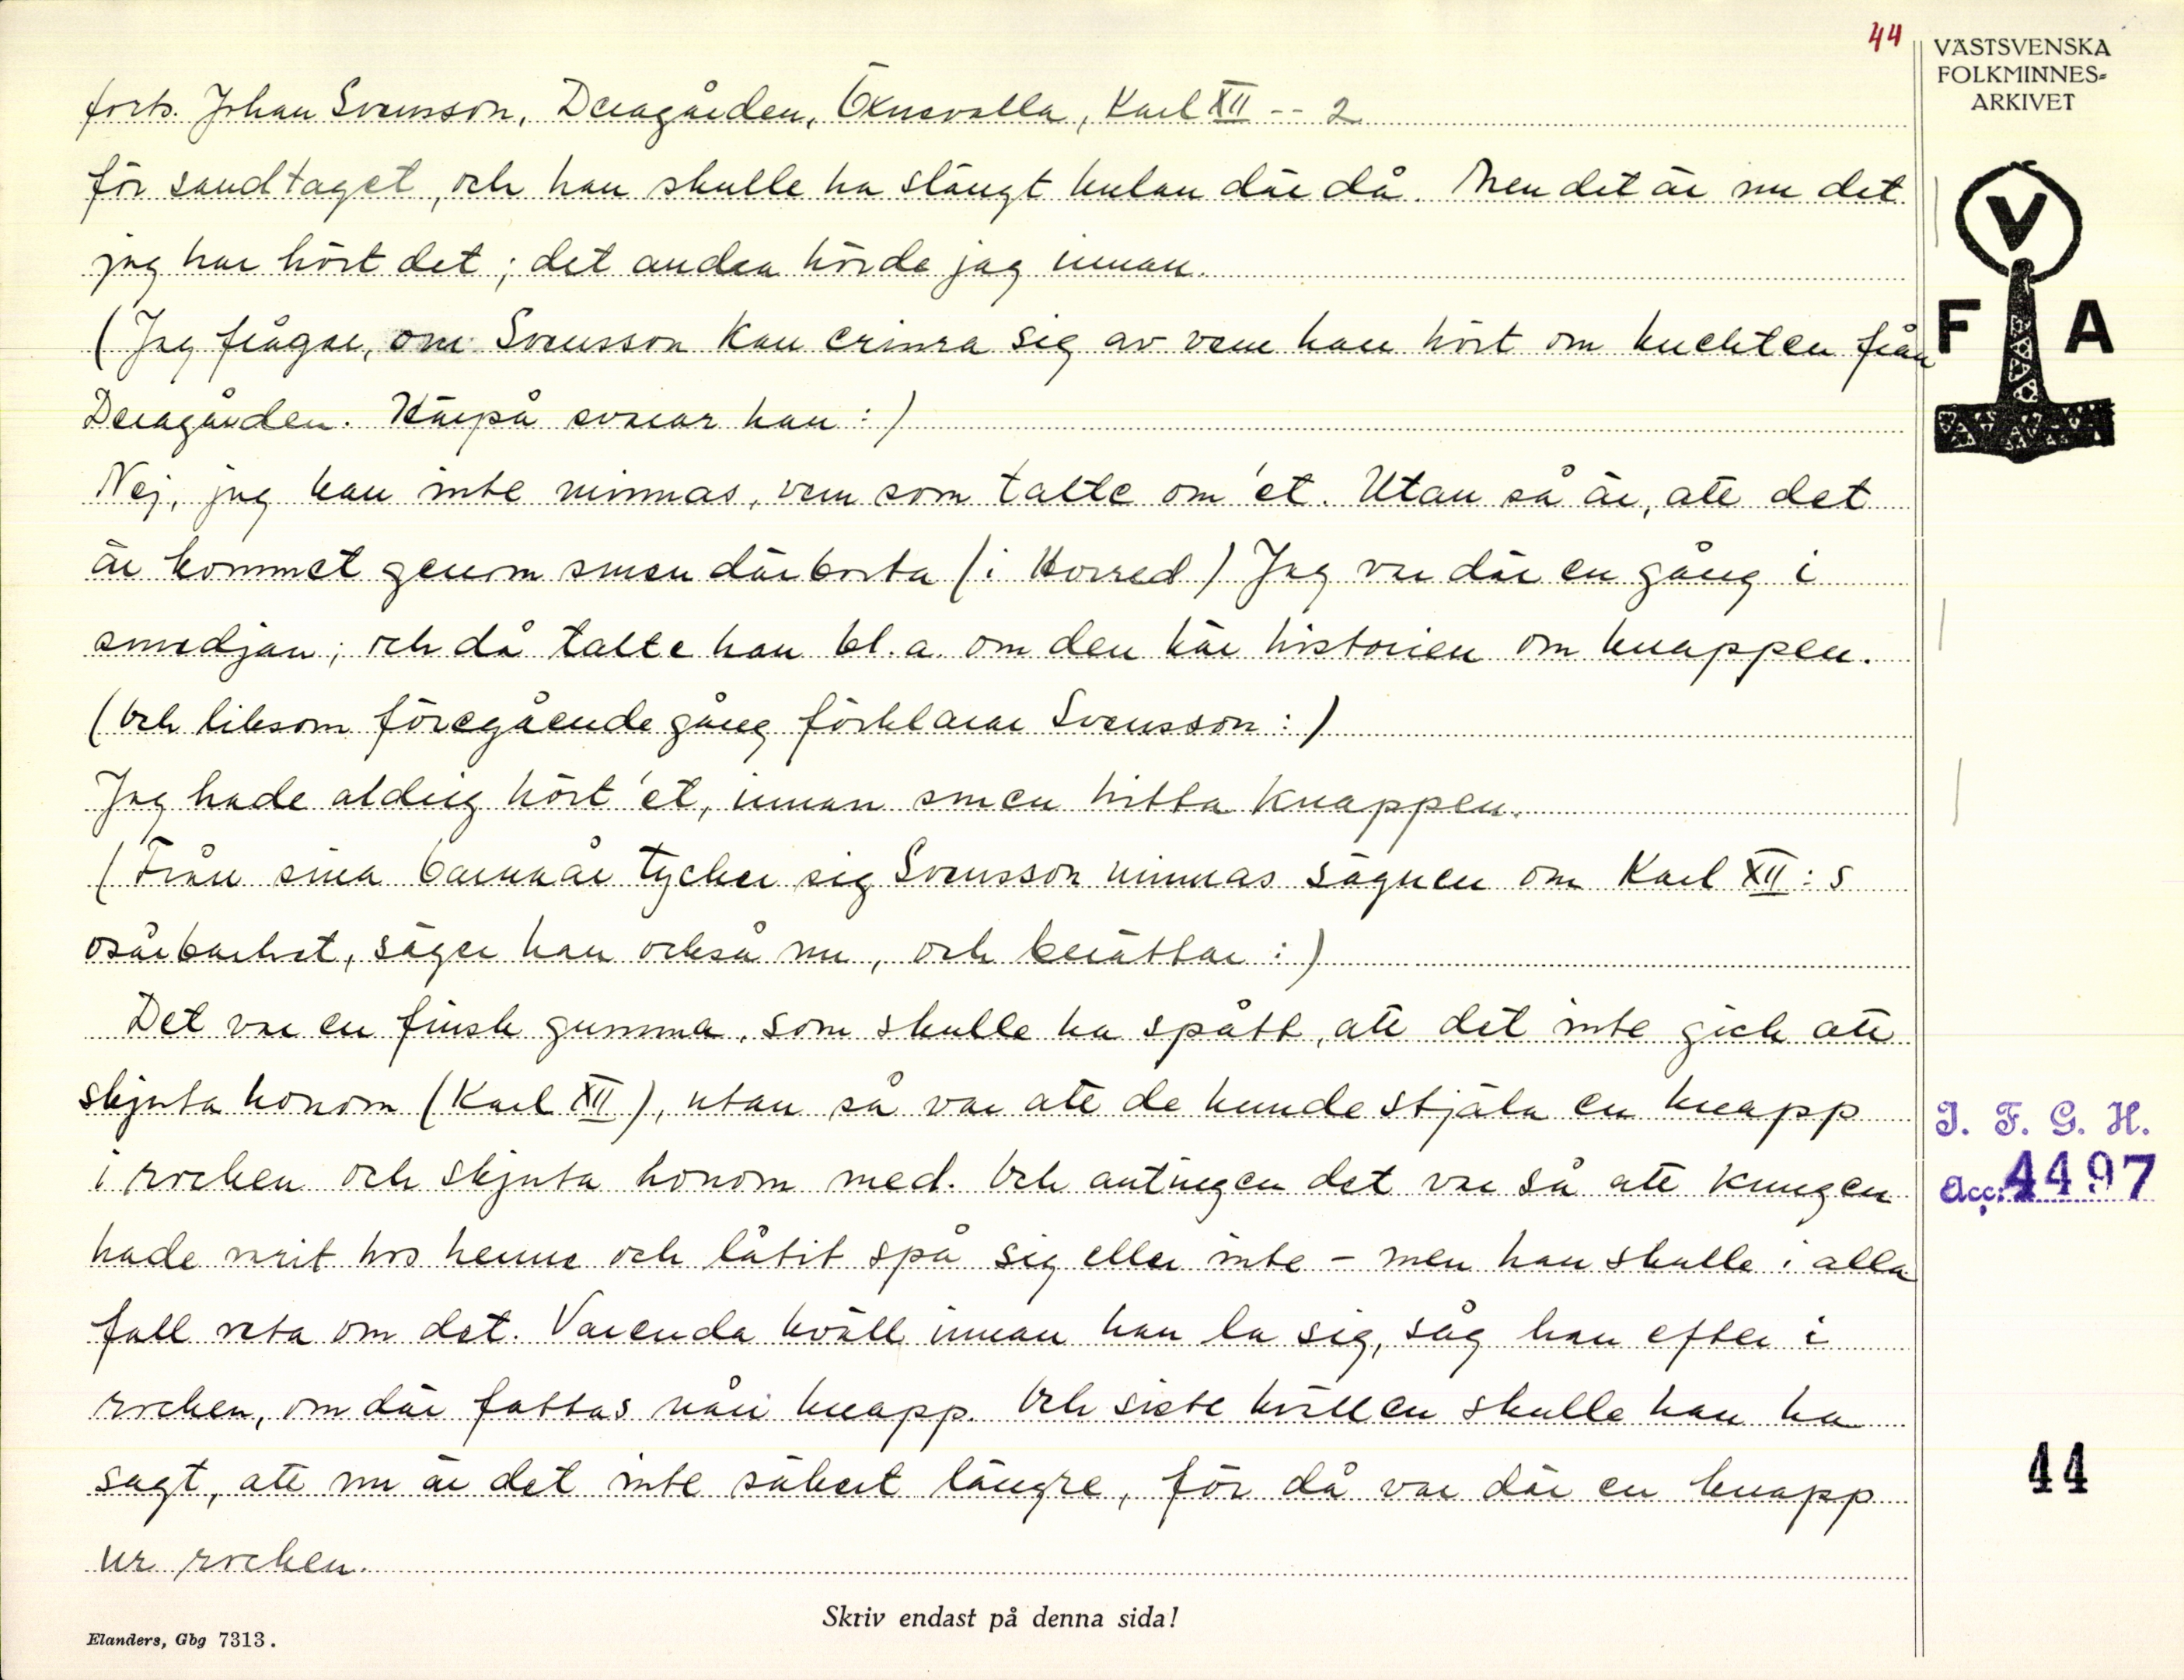 44
VÄSTSVENSKA
FOLKMINNES-
ARKIVET
forts. Johan Svensson, Deragården, Öxnevalla, Karl XII -- 2
för sandtaget, och han skulle ha slängt kulan där då. Men det är nu det
jag har hört det; det andra hörde jag innan.
(Jag frågar, om Svensson kan erinra sig av vem han hört om knekten från
Deragården. Härpå svarar han:)
Nej, jag kan inte minnas, vem som talte om'et. Utan så är, att det
är kommet genom smen därborta (i Horred) Jag var där en gång i
smedjan; och då talte han bl.a. om den här historien om knappen.
(Och liksom föregående gång förklarar Svensson:)
Jag hade aldrig hört'et, innan smen hitta knappen.
(Från sina barnaår tycker sig Svensson minnas sägnen om Karl XII:s
osårbarhet, säger han också nu, och berättar:)
Det var en finsk gumma, som skulle ha spått, att det inte gick att
skjuta honom (Karl XII), utan så var att de kunde stjäla en knapp
i rocken och skjuta honom med. Och antingen det var så att kungen
hade varit hos henne och låtit spå sig eller inte – men han skulle i alla
fall veta om det. Varenda kväll innan han la sig, såg han efter i
rocken, om där fattas nåri knapp. Och siste kvällen skulle han ha
sagt, att nu är det inte säkert längre, för då var där en knapp
ur rocken.
V
F A
I. F. G. H.
Acc: 4497
44
Skriv endast på denna sida!
Elanders, Gbg 7313.